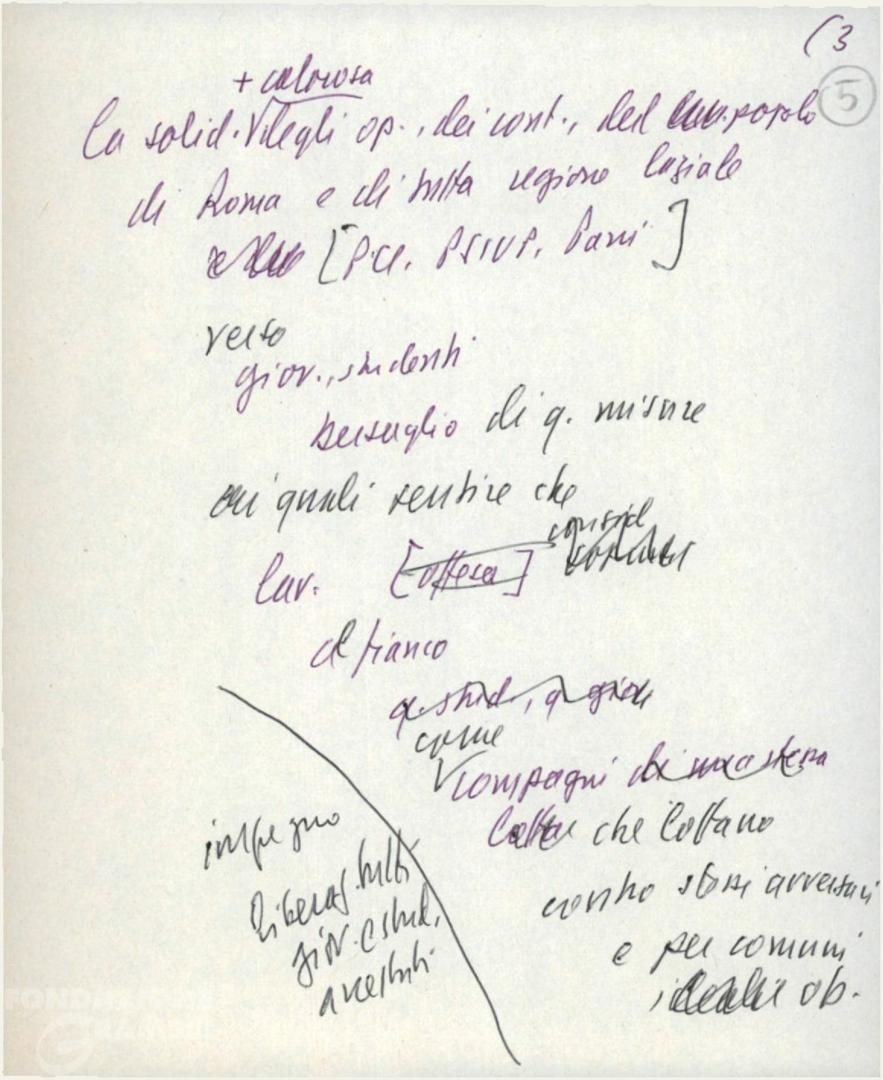 (3
5
+ calorosa
la solid. degli op., dei cont., del popolo
di Roma e di tutta regione laziale
[PCI, PSIUP, Parri]
verso
giov., studenti
bersaglio di q. misure
cui quali sentire che
consid
lav. [offesa]
al fianco
q. stud., q. giov.
come
compagni di una stessa
lotta che lottano
contro stessi avversari
e per comuni
ob.
impegno
liberaz. tutti
giov. e stud.
arrestati
FONDAZIONE